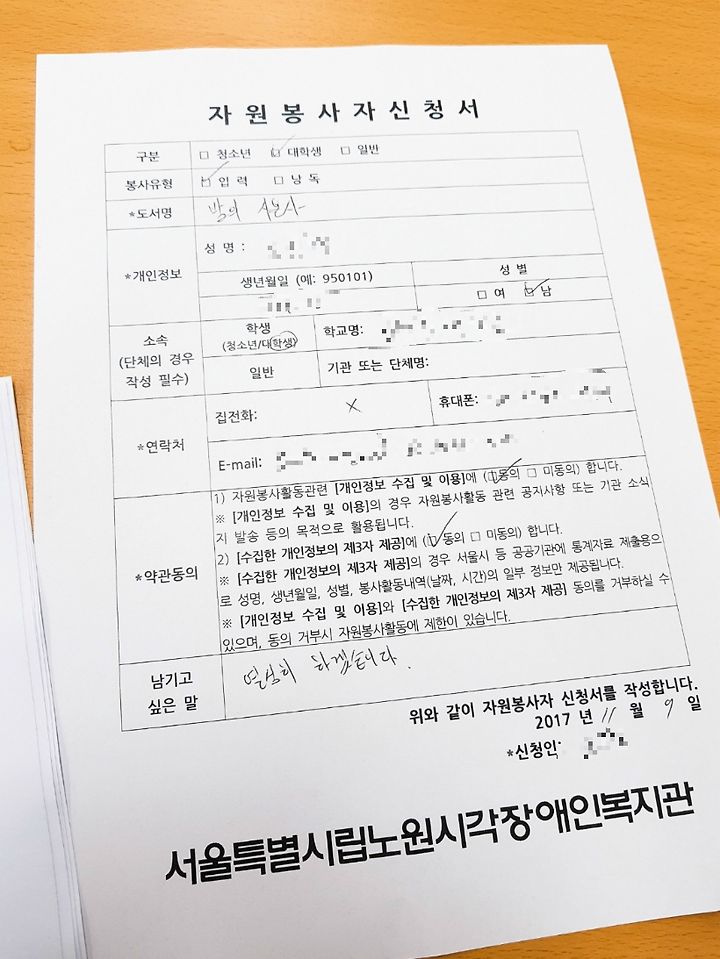 자원봉사자신청서
구분 □ 청소년 ☑ 대학생 □ 일반
봉사유형 ☑ 입력 □ 낭독
*도서명 밤의
*개인정보
성 명 :
생년월일 (예: 950101) 성 별
□ 여 ☑ 남
소속
(단체의 경우
작성 필수)
학생
(청소년/대학생)
학교명:
일반 기관 또는 단체명:
*연락처
집전화: X 휴대폰:
E-mail:
*약관동의
1) 자원봉사활동관련 [개인정보 수집 및 이용]에 (☑동의 □ 미동의) 합니다.
※ [개인정보 수집 및 이용]의 경우 자원봉사활동 관련 공지사항 또는 기관 소식
지 발송 등의 목적으로 활용됩니다.
2) [수집한 개인정보의 제3자 제공]에 (☑ 동의 □ 미동의) 합니다.
※ [수집한 개인정보의 제3자 제공]의 경우 서울시 등 공공기관에 통계자료 제출용으
로 성명, 생년월일, 성별, 봉사활동내역(날짜, 시간)의 일부 정보만 제공됩니다.
※ [개인정보 수집 및 이용]와 [수집한 개인정보의 제3자 제공] 동의를 거부하실 수
있으며, 동의 거부시 자원봉사활동에 제한이 있습니다.
남기고
싶은 말
열심히 하겠습니다.
위와 같이 자원봉사자 신청서를 작성합니다.
2017 년 11 월 9 일
*신청인:
서울특별시립노원시각장애인복지관